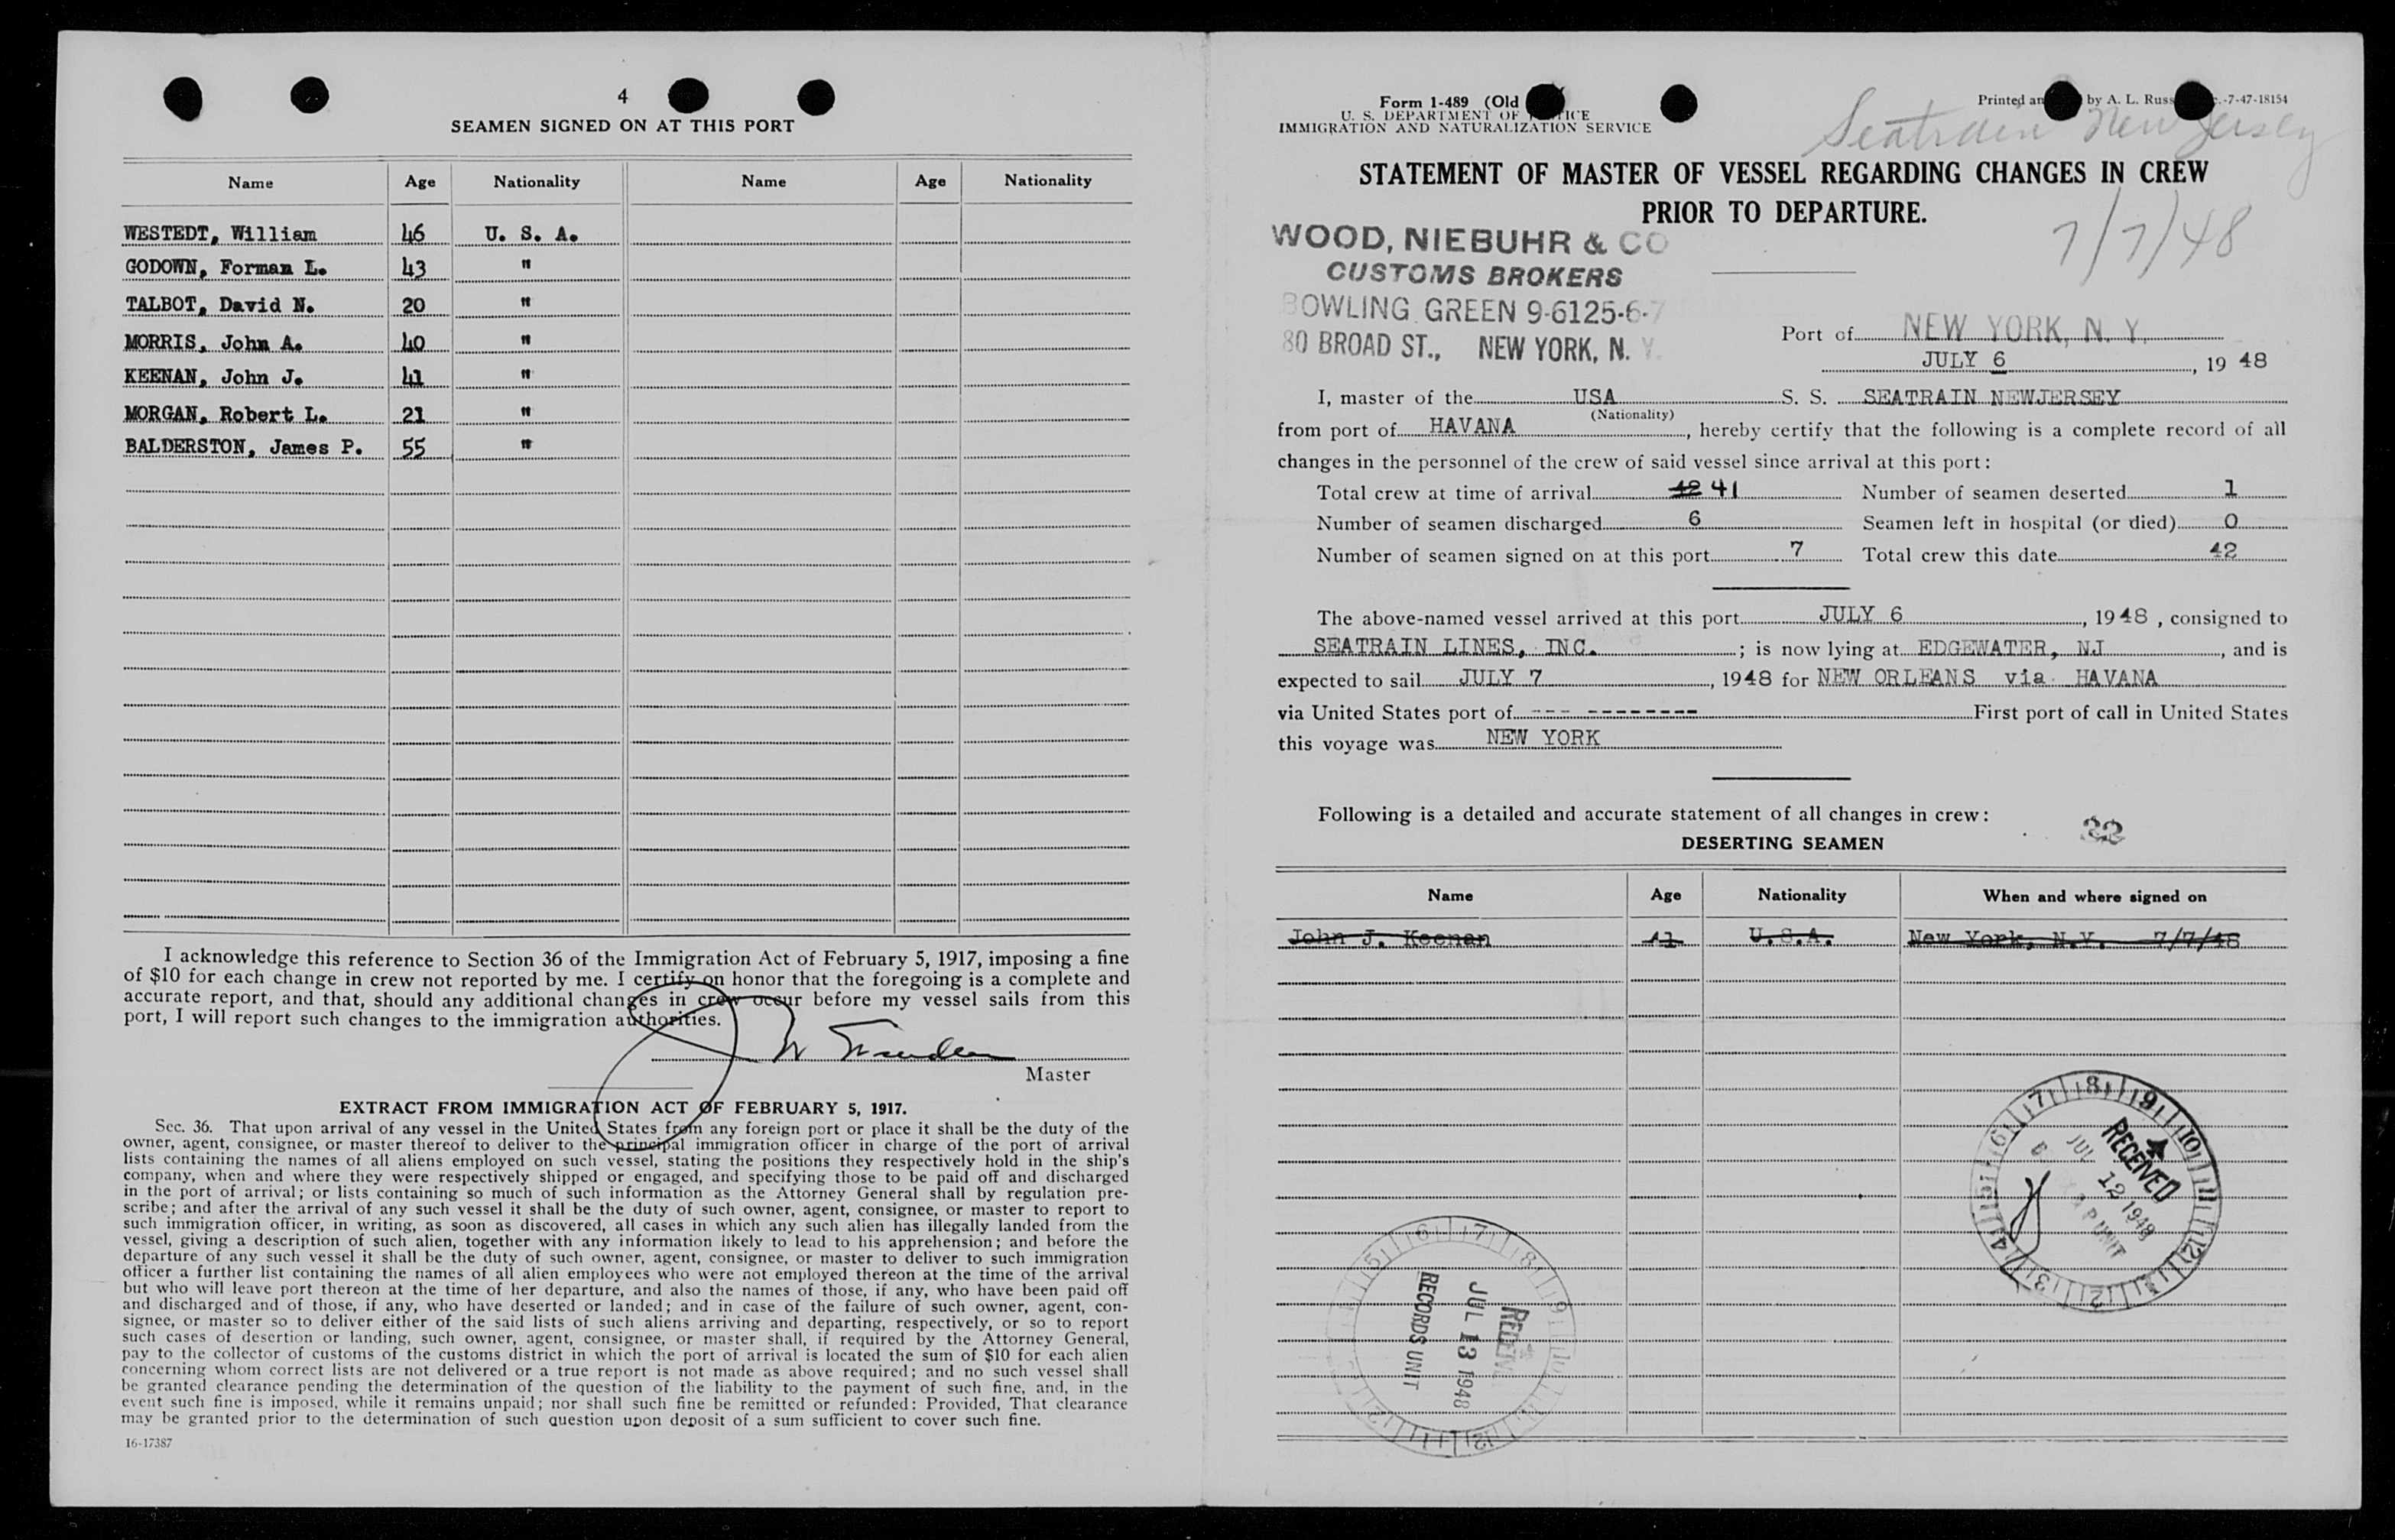 4
SEAMEN SIGNED ON AT THIS PORT
Name Age Nationality Name Age Nationality
WESTEDT, William 46 U. S. A.
GODOWN, Forman L. 43 "
TALBOT, David N. 20 "
MORRIS, John A. 40 "
KEENAN, John J. 41 "
MORGAN, Robert L. 21 "
BALDERSTON, James P. 55 "
I acknowledge this reference to Section 36 of the Immigration Act of February 5, 1917, imposing a fine
of $10 for each change in crew not reported by me. I certify on honor that the foregoing is a complete and
accurate report, and that, should any additional changes in crew occur before my vessel sails from this
port, I will report such changes to the immigration authorities.
Master
EXTRACT FROM IMMIGRATION ACT OF FEBRUARY 5, 1917.
Sec. 36. That upon arrival of any vessel in the United States from any foreign port or place it shall be the duty of the
owner, agent, consignee, or master thereof to deliver to the principal immigration officer in charge of the port of arrival
lists containing the names of all aliens employed on such vessel, stating the positions they respectively hold in the ship's
company, when and where they were respectively shipped or engaged, and specifying those to be paid off and discharged
in the port of arrival; or lists containing so much of such information as the Attorney General shall by regulation pre-
scribe; and after the arrival of any such vessel it shall be the duty of such owner, agent, consignee, or master to report to
such immigration officer, in writing, as soon as discovered, all cases in which any such alien has illegally landed from the
vessel, giving a description of such alien, together with any information likely to lead to his apprehension; and before the
departure of any such vessel it shall be the duty of such owner, agent, consignee, or master to deliver to such immigration
officer a further list containing the names of all alien employees who were not employed thereon at the time of the arrival
but who will leave port thereon at the time of her departure, and also the names of those, if any, who have been paid off
and discharged and of those, if any, who have deserted or landed; and in case of the failure of such owner, agent, con-
signee, or master so to deliver either of the said lists of such aliens arriving and departing, respectively, or so to report
such cases of desertion or landing, such owner, agent, consignee, or master shall, if required by the Attorney General,
pay to the collector of customs of the customs district in which the port of arrival is located the sum of $10 for each alien
concerning whom correct lists are not delivered or a true report is not made as above required; and no such vessel shall
be granted clearance pending the determination of the question of the liability to the payment of such fine, and, in the
event such fine is imposed, while it remains unpaid; nor shall such fine be remitted or refunded: Provided, That clearance
may be granted prior to the determination of such question upon deposit of a sum sufficient to cover such fine.
16-17387
Form 1-489 (Old
U. S. DEPARTMENT OF
IMMIGRATION AND NATURALIZATION SERVICE
Printed by A. L. Russ -7-47-18154
Seatrain New Jersey
STATEMENT OF MASTER OF VESSEL REGARDING CHANGES IN CREW
PRIOR TO DEPARTURE.
7/7/48
WOOD, NIEBUHR & CO
CUSTOMS BROKERS
BOWLING GREEN 9-6125-6-7
80 BROAD ST., NEW YORK, N. Y.
Port of NEW YORK, N. Y.
JULY 6, 19 48
I, master of the USA S. S. SEATRAIN NEWJERSEY
(Nationality)
from port of HAVANA, hereby certify that the following is a complete record of all
changes in the personnel of the crew of said vessel since arrival at this port:
Total crew at time of arrival 42 41 Number of seamen deserted 1
Number of seamen discharged 6 Seamen left in hospital (or died) 0
Number of seamen signed on at this port 7 Total crew this date 42
The above-named vessel arrived at this port JULY 6, 1948, consigned to
SEATRAIN LINES, INC.; is now lying at EDGEWATER, NJ, and is
expected to sail JULY 7, 1948 for NEW ORLEANS via HAVANA
via United States port of --- -------- First port of call in United States
this voyage was NEW YORK
Following is a detailed and accurate statement of all changes in crew:
DESERTING SEAMEN
Name Age Nationality When and where signed on
John J. Keenan 41 U.S.A. New York, N.Y. 7/7/48
RECEIVED
JUL 12 1948
UNIT
JUL 13 1948
RECORDS UNIT